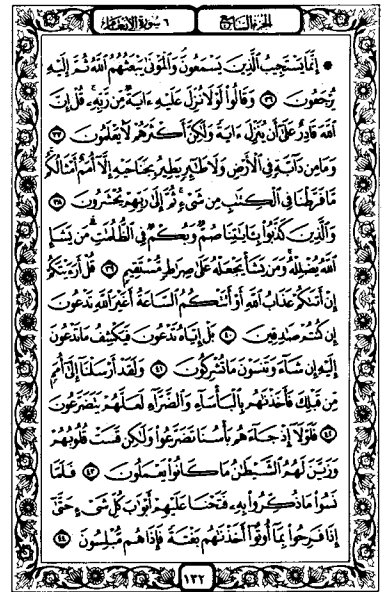 الجزء السابع ٦ سورة الأنعام
۞ إِنَّمَا يَسْتَجِيبُ الَّذِينَ يَسْمَعُونَ وَالْمَوْتَىٰ يَبْعَثُهُمُ اللَّهُ ثُمَّ إِلَيْهِ
يُرْجَعُونَ ٣٦ وَقَالُوا لَوْلَا نُزِّلَ عَلَيْهِ ءَايَةٌ مِّن رَّبِّهِ قُلْ إِنَّ
اللَّهَ قَادِرٌ عَلَىٰ أَن يُنَزِّلَ ءَايَةً وَلَٰكِنَّ أَكْثَرَهُمْ لَا يَعْلَمُونَ ٣٧
وَمَا مِن دَابَّةٍ فِي الْأَرْضِ وَلَا طَٰٓئِرٍ يَطِيرُ بِجَنَاحَيْهِ إِلَّا أُمَمٌ أَمْثَالُكُم
مَّا فَرَّطْنَا فِي الْكِتَٰبِ مِن شَيْءٍ ثُمَّ إِلَىٰ رَبِّهِمْ يُحْشَرُونَ ٣٨
وَالَّذِينَ كَذَّبُوا بِـَٔايَٰتِنَا صُمٌّ وَبُكْمٌ فِي الظُّلُمَٰتِ مَن يَشَإِ
اللَّهُ يُضْلِلْهُ وَمَن يَشَأْ يَجْعَلْهُ عَلَىٰ صِرَٰطٍ مُّسْتَقِيمٍ ٣٩ قُلْ أَرَءَيْتَكُمْ
إِنْ أَتَىٰكُمْ عَذَابُ اللَّهِ أَوْ أَتَتْكُمُ السَّاعَةُ أَغَيْرَ اللَّهِ تَدْعُونَ
إِن كُنتُمْ صَٰدِقِينَ ٤٠ بَلْ إِيَّاهُ تَدْعُونَ فَيَكْشِفُ مَا تَدْعُونَ
إِلَيْهِ إِن شَآءَ وَتَنسَوْنَ مَا تُشْرِكُونَ ٤١ وَلَقَدْ أَرْسَلْنَا إِلَىٰ أُمَمٍ
مِّن قَبْلِكَ فَأَخَذْنَٰهُم بِالْبَأْسَآءِ وَالضَّرَّآءِ لَعَلَّهُمْ يَتَضَرَّعُونَ
٤٢ فَلَوْلَا إِذْ جَآءَهُم بَأْسُنَا تَضَرَّعُوا وَلَٰكِن قَسَتْ قُلُوبُهُمْ
وَزَيَّنَ لَهُمُ الشَّيْطَٰنُ مَا كَانُوا يَعْمَلُونَ ٤٣ فَلَمَّا
نَسُوا مَا ذُكِّرُوا بِهِ فَتَحْنَا عَلَيْهِمْ أَبْوَٰبَ كُلِّ شَيْءٍ حَتَّىٰ
إِذَا فَرِحُوا بِمَا أُوتُوا أَخَذْنَٰهُم بَغْتَةً فَإِذَا هُم مُّبْلِسُونَ ٤٤
١٣٢